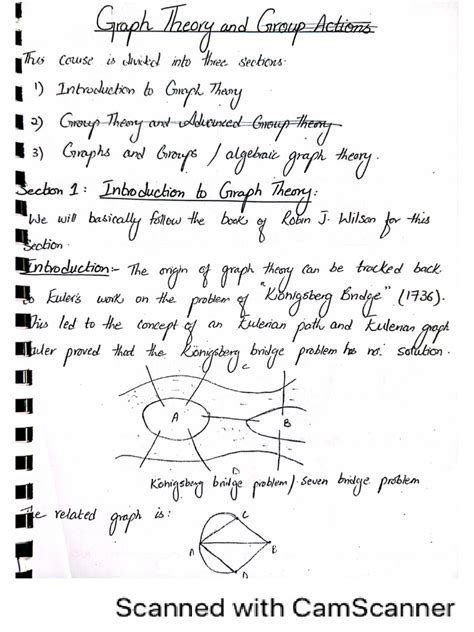 Graph Theory and Group Actions
This course is divided into three sections.
1) Introduction to Graph Theory
2) Group Theory and Advanced Group theory
3) Graphs and Groups / algebraic graph theory.
Section 1: Introduction to Graph Theory:
We will basically follow the book of Robin J. Wilson for this
section.
Introduction:- The origin of graph theory can be tracked back
to Euler's work on the problem of "Königsberg Bridge" (1736).
This led to the concept of an Eulerian path and Eulerian graph
Euler proved that the Königsberg bridge problem has no solution.
C
A
B
D
Königsberg bridge problem / seven bridge problem
The related graph is:
C
A
B
D
Scanned with CamScanner